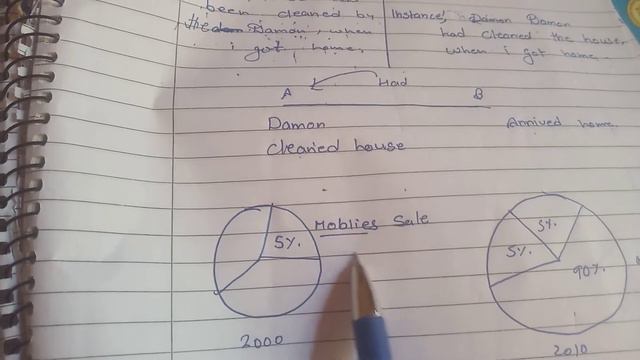 been cleaned by
Damon, when
i got, home,
Instance, Damon Damon
had cleaned the house
when i got home.
Had
A B
Damon
cleaned house
Arrived home.
Moblies Sale
5%.
5%.
5%.
90%.
2000
2010